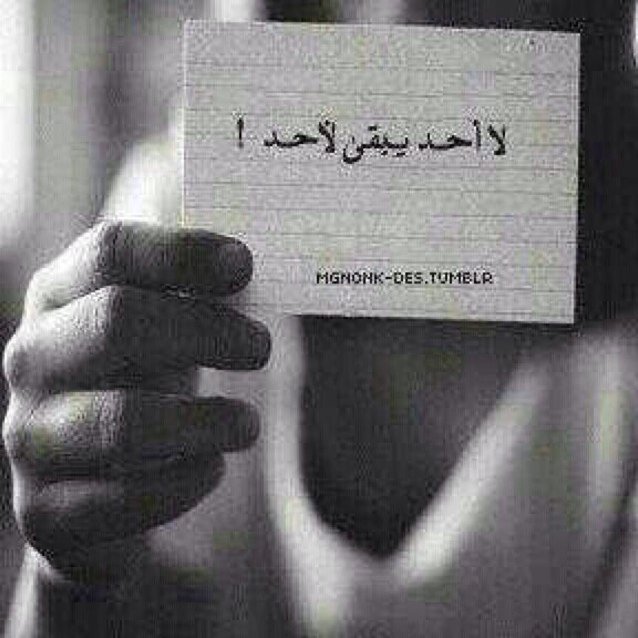 لا أحد يبقى لأحد !
MGNONK-DES.TUMBLR